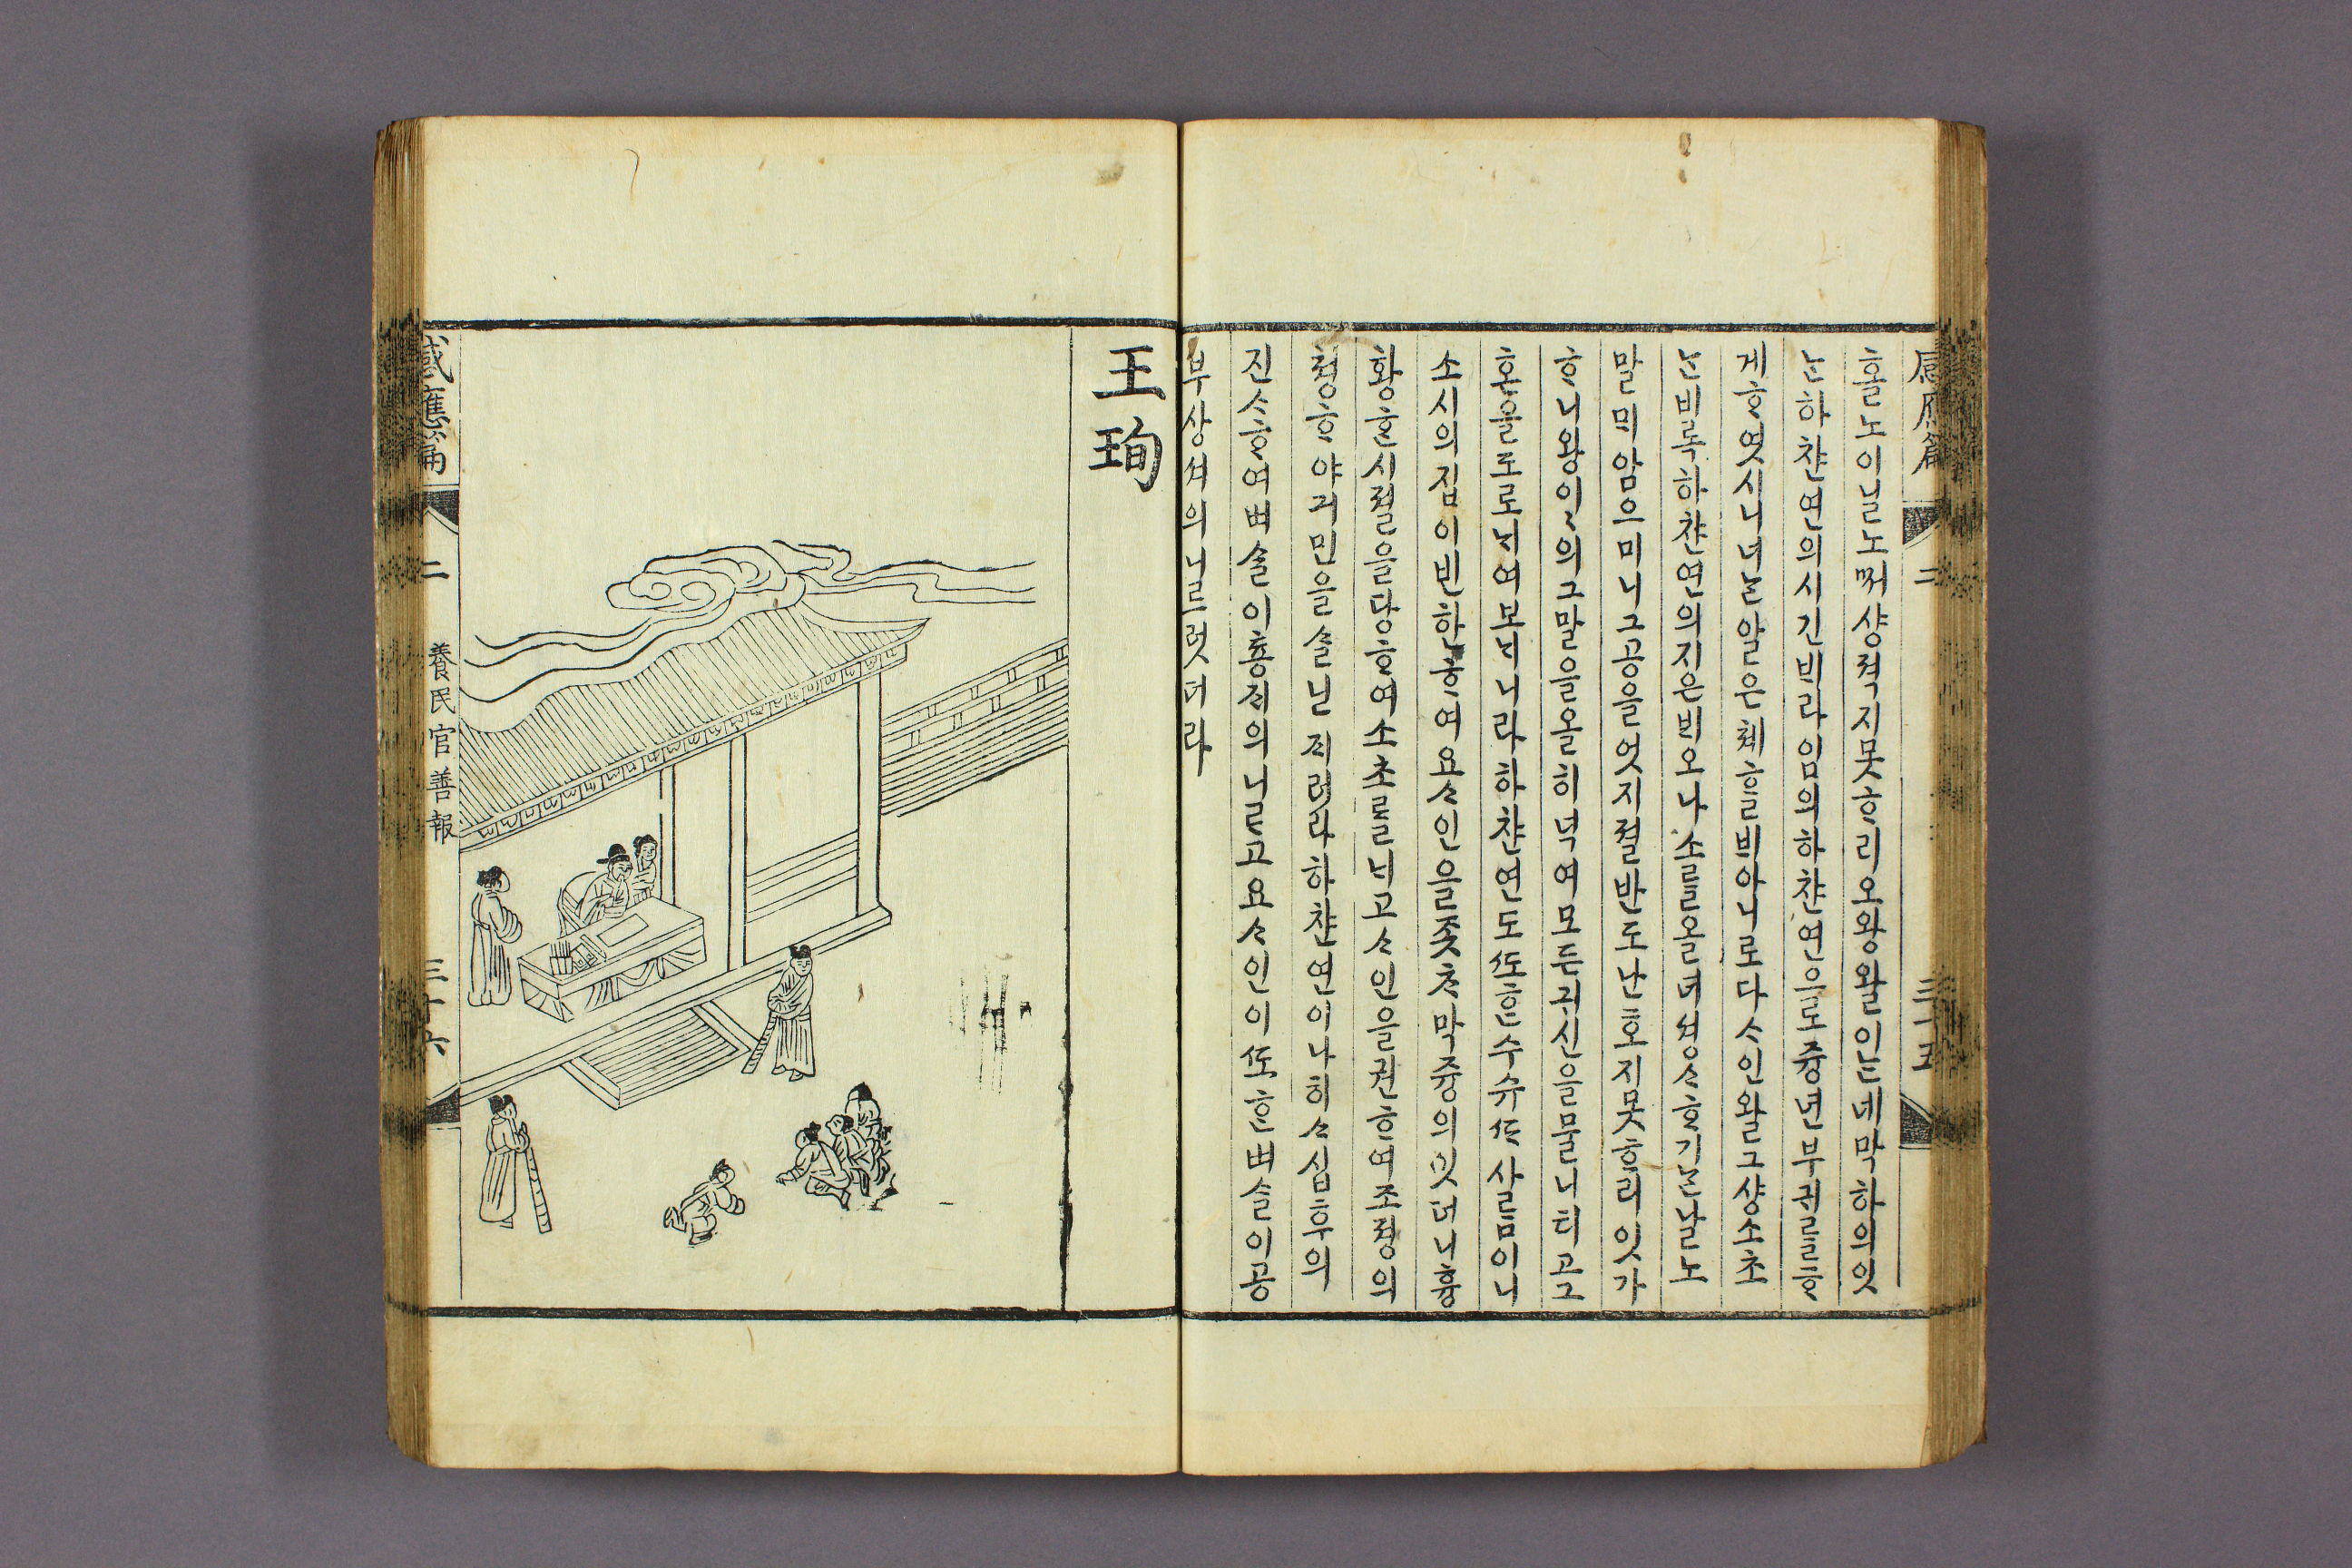 感應篇 二 三十五
홀노이닐노ᄡᅥ샹젹지못ᄒᆞ리오왕왈이ᄂᆞᆫ네막하의잇
ᄂᆞᆫ하챤연의시긴ᄇᆡ라임의하챤연으로즁년부귀ᄅᆞᆯᄒᆞ
게ᄒᆞ엿시니너ᄂᆞᆫ알은쳬ᄒᆞᆯᄇᆡ아니로다ᄉᆞ인왈그샹소초
ᄂᆞᆫ비록하챤연의지은ᄇᆡ오나소ᄅᆞᆯ올녀셩ᄉᆞᄒᆞ기ᄂᆞᆫ날노
말ᄆᆡ암으미니그공을엇지졀반도난호지못ᄒᆞ리잇가
ᄒᆞ니왕이〻의그말을올히넉여모든귀신을물니티고그
혼을도로ᄂᆡ여보ᄂᆡ니라하챤연도ᄯᅩᄒᆞᆫ수슈ᄯᅡ사ᄅᆞᆷ이니
소시의집이빈하ᄒᆞ여요ᄉᆞ인을좃ᄎᆞ막즁의잇더니흉
황ᄒᆞᆫ시졀을당ᄒᆞ여소초ᄅᆞᆯᄂᆡ고ᄉᆞ인을권ᄒᆞ여조졍의
쳥ᄒᆞ야긔민을술닌ᄌᆡ러라하챤연이나히ᄉᆞ십후의
진ᄉᆞᄒᆞ여벼슬이춍ᄌᆡ의니르고요ᄉᆞ인이ᄯᅩᄒᆞᆫ벼슬이공
부상셔의니르럿더라
王珣
感應篇 二 養民官善報 三十六